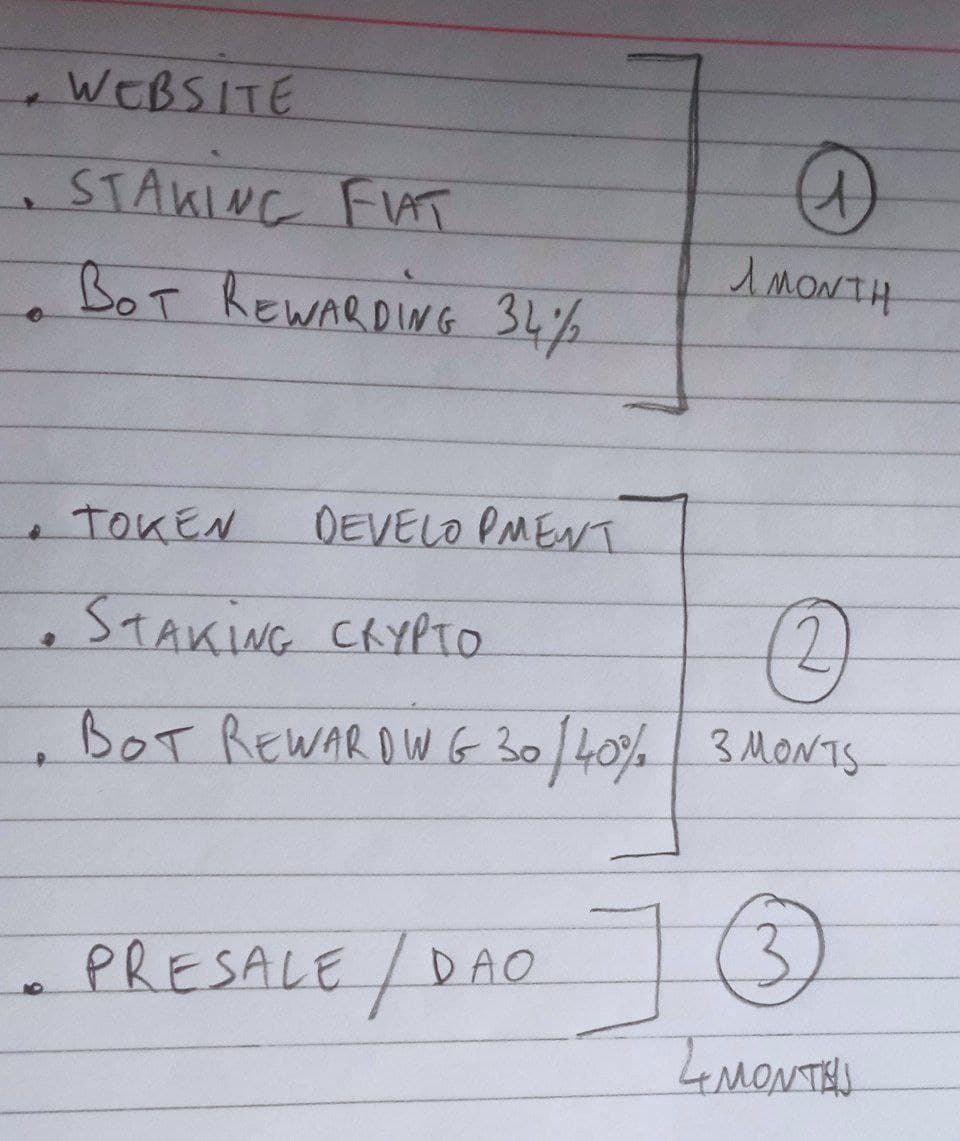 . WEBSITE
. STAKING FIAT
. BOT REWARDING 34%
1
1 MONTH
. TOKEN DEVELOPMENT
. STAKING CRYPTO
. BOT REWARDING 30/40%
2
3 MONTS
. PRESALE / DAO
3
4 MONTHS